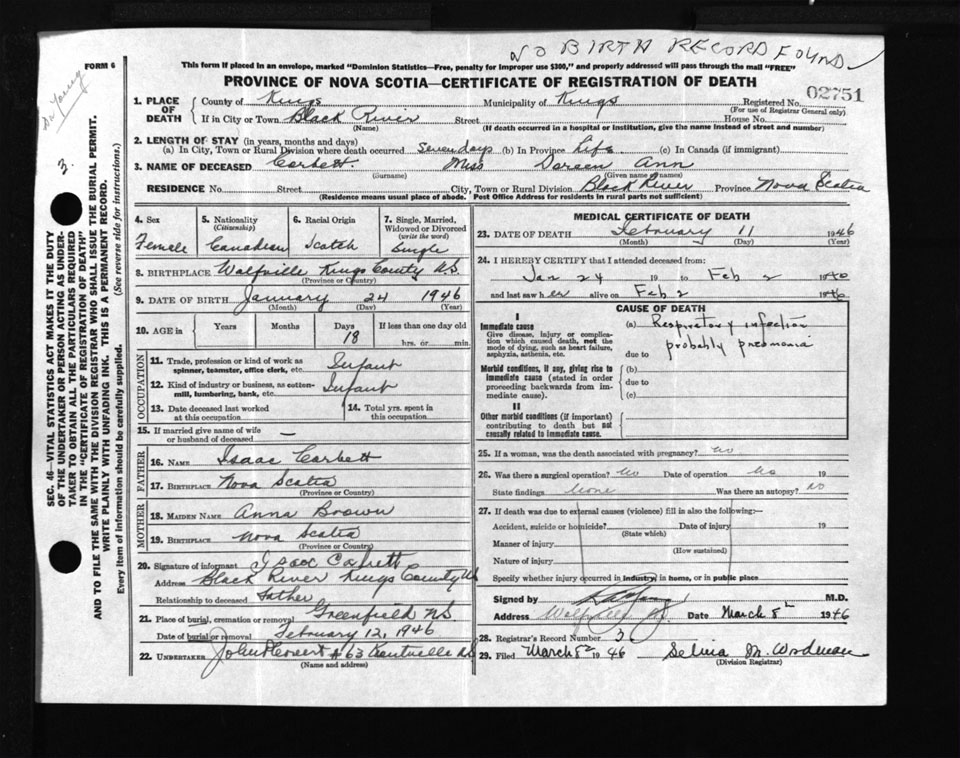 NO BIRTH RECORD FOUND
FORM 6
This form if placed in an envelope, marked "Dominion Statistics—Free, penalty for improper use $300," and properly addressed will pass through the mail "FREE"
PROVINCE OF NOVA SCOTIA—CERTIFICATE OF REGISTRATION OF DEATH
02751
Dr Young
3.
SEC. 46—VITAL STATISTICS ACT MAKES IT THE DUTY
OF THE UNDERTAKER OR PERSON ACTING AS UNDER-
TAKER TO OBTAIN ALL THE PARTICULARS REQUIRED
IN THE "CERTIFICATE OF REGISTRATION OF DEATH"
AND TO FILE THE SAME WITH THE DIVISION REGISTRAR WHO SHALL ISSUE THE BURIAL PERMIT.
WRITE PLAINLY WITH UNFADING INK. THIS IS A PERMANENT RECORD.
Every item of information should be carefully supplied. (See reverse side for instructions.)
1. PLACE OF DEATH
County of Kings Municipality of Kings Registered No.
(For use of Registrar General only)
If in City or Town Black River Street House No.
(Name) (If death occurred in a hospital or institution, give the name instead of street and number)
2. LENGTH OF STAY (in years, months and days)
(a) In City, Town or Rural Division where death occurred seven days (b) In Province Life (c) In Canada (if immigrant)
3. NAME OF DECEASED Corbett Miss Doreen Ann
(Surname) (Given name or names)
RESIDENCE No. Street City, Town or Rural Division Black River Province Nova Scotia
(Residence means usual place of abode. Post Office Address for residents in rural parts not sufficient)
4. Sex
Female
5. Nationality
(Citizenship)
Canadian
6. Racial Origin
Scotch
7. Single, Married, Widowed or Divorced
(write the word)
Single
8. BIRTHPLACE Wolfville Kings County N.S.
(Province or Country)
9. DATE OF BIRTH January 24 1946
(Month) (Day) (Year)
10. AGE in Years Months Days If less than one day old
18 hrs. or min.
OCCUPATION
11. Trade, profession or kind of work as spinner, teamster, office clerk, etc. Infant
12. Kind of industry or business, as cotton-mill, lumbering, bank, etc. Infant
13. Date deceased last worked at this occupation
14. Total yrs. spent in this occupation
15. If married give name of wife or husband of deceased —
FATHER
16. NAME Isaac Corbett
17. BIRTHPLACE Nova Scotia
(Province or Country)
MOTHER
18. MAIDEN NAME Anna Brown
19. BIRTHPLACE Nova Scotia
(Province or Country)
20. Signature of informant Isaac Corbett
Address Black River Kings County NS
Relationship to deceased Father
21. Place of burial, cremation or removal Greenfield N.S.
Date of burial or removal February 12, 1946
22. UNDERTAKER #63 Kentville NS
(Name and address)
MEDICAL CERTIFICATE OF DEATH
23. DATE OF DEATH February 11 1946
(Month) (Day) (Year)
24. I HEREBY CERTIFY that I attended deceased from:
Jan 24 19 to Feb 2 1946
and last saw her alive on Feb 2 1946
CAUSE OF DEATH
I
Immediate cause
Give disease, injury or complication which caused death, not the mode of dying, such as heart failure, asphyxia, asthenia, etc.
(a) Respiratory infection
probably pneumonia
due to
Morbid conditions, if any, giving rise to immediate cause (stated in order proceeding backwards from immediate cause).
(b)
due to
(c)
II
Other morbid conditions (if important) contributing to death but not causally related to immediate cause.
25. If a woman, was the death associated with pregnancy? No
26. Was there a surgical operation? No Date of operation No 19
State findings None Was there an autopsy? No
27. If death was due to external causes (violence) fill in also the following:—
Accident, suicide or homicide? Date of injury 19
(State which)
Manner of injury
(How sustained)
Nature of injury
Specify whether injury occurred in industry, in home, or in public place
Signed by M.D.
Address Wolfville NS Date March 8th 1946
28. Registrar's Record Number 3.
29. Filed March 8th 1946 Selina M. Wordman
(Division Registrar)